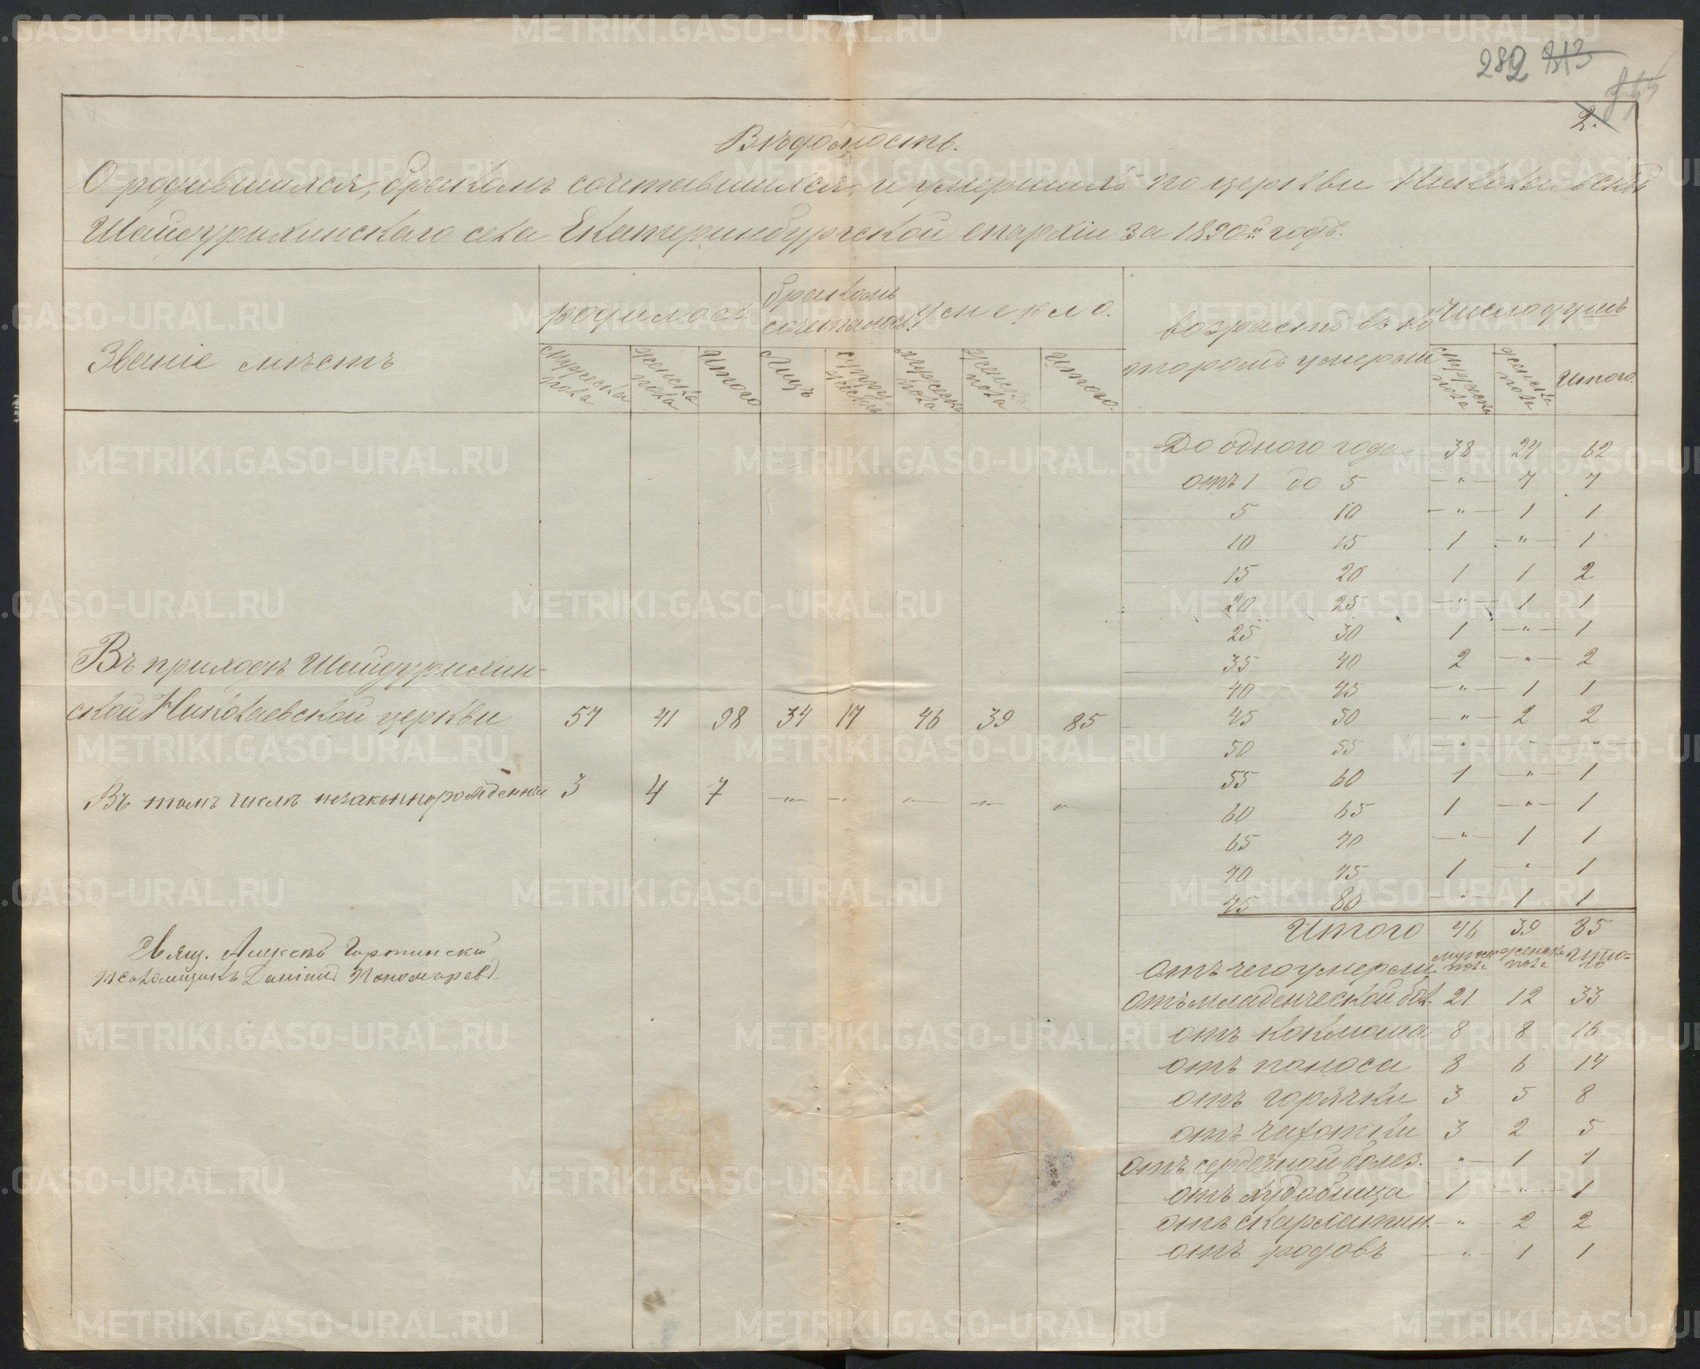 282 313
2.
Вѣдомость.
О родившихся, бракомъ сочетавшихся, и умершихъ по церкви Николаевской
Шайдурихинскаго села Екатеринбургской епархіи за 1890й годъ.
Званіе мѣстъ родилось бракомъ сочеталось умерло. возрастъ въ ко- Число душъ
торомъ умерли
мужеска пола женска пола Итого Лицъ супружествъ мужеска пола женска пола Итого. мужеска пола женска пола Итого.
До одного года 38 24 62
отъ 1 до 5 — " — 7 7
5 10 — " — 1 1
10 15 1 — " — 1
15 20 1 1 2
20 25 — " — 1 1
25 30 1 — " — 1
35 40 2 — " — 2
40 45 — " — 1 1
45 50 — " — 2 2
50 55 — " — " "
55 60 1 — " — 1
60 65 1 — " — 1
65 70 — " — 1 1
70 75 1 " 1
75 80 — " — 1 1
Итого 46 39 85
Въ приходѣ Шайдурихин-
ской Николаевской церкви 57 41 98 34 17 46 39 85
Въ томъ числѣ незаконнорожденныхъ 3 4 7 — " — — " — — " — — " — "
Свящ. Алексѣй
Псаломщикъ Пономаревъ.
Отъ чего умерли мужск пола женскъ пола Ито-го
Отъ младенческой бол. 21 12 33
отъ коклюша 8 8 16
отъ поноса 8 6 14
отъ горячки 3 5 8
отъ чахотки 3 2 5
Отъ сердечной болез. " 1 1
отъ худобища 1 " 1
отъ скарлатин. " 2 2
отъ родовъ " 1 1
METRIKI.GASO-URAL.RU